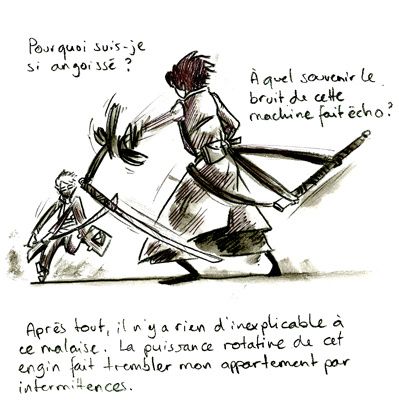 Pourquoi suis-je
si angoissé ?
À quel souvenir le
bruit de cette
machine fait écho ?
Après tout, il n'y a rien d'inexplicable à
ce malaise. La puissance rotative de cet
engin fait trembler mon appartement par
intermittences.